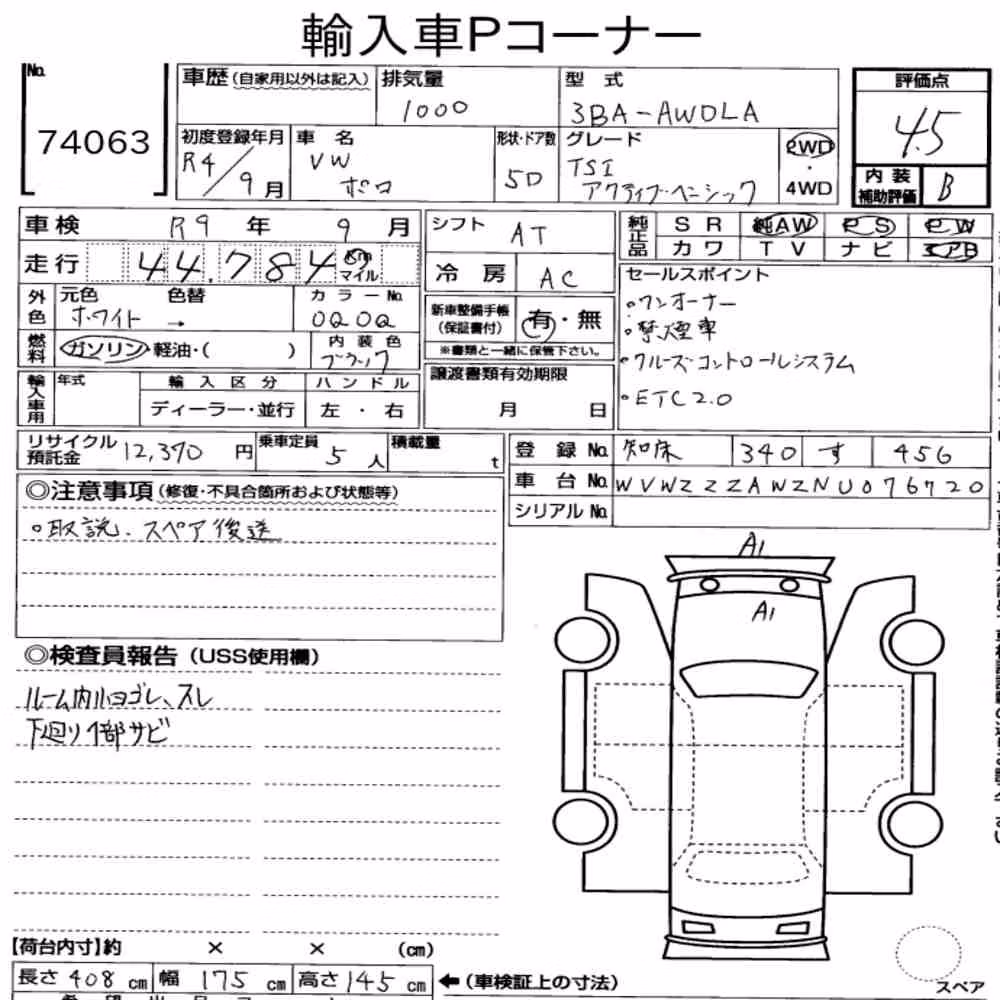 輸入車Pコーナー
No.
74063
車歴(自家用以外は記入)
排気量
1000
型 式
3BA-AWDLA
評価点
4.5
初度登録年月
R4/9月
車 名
VW
ポロ
形状・ドア数
5D
グレード
TSI
アクティブベーシック
2WD
・
4WD
内 装
補助評価
B
車検
R9 年 9 月
シフト
AT
純正品
SR 純AW PS PW
カワ TV ナビ エアB
走行
44,784
Km
マイル
冷 房
AC
セールスポイント
。ワンオーナー
。禁煙車
。クルーズコントロールシステム
。ETC2.0
外色
元色
ホワイト
色替
→
カラーNo.
0Q0Q
新車整備手帳
(保証書付)
有・無
※書類と一緒に保管下さい。
燃料
ガソリン・軽油・( )
内 装 色
ブラック
輸入車用
年式
輸 入 区 分
ディーラー・並行
ハ ン ド ル
左 ・ 右
譲渡書類有効期限
月 日
リサイクル
預託金
12,370 円
乗車定員
5人
積載量
t
登 録 No.
知床 340 す 456
車 台 No.
WVWZZZAWZNU076720
シリアル No.
◎注意事項(修復・不具合箇所および状態等)
。取説、スペア後送
A1
A1
◎検査員報告(USS使用欄)
ルーム内小ヨゴレ、スレ
下廻り1部サビ
【荷台内寸】約 × × (cm)
長さ 408 cm 幅 175 cm 高さ 145 cm
←(車検証上の寸法)
スペア